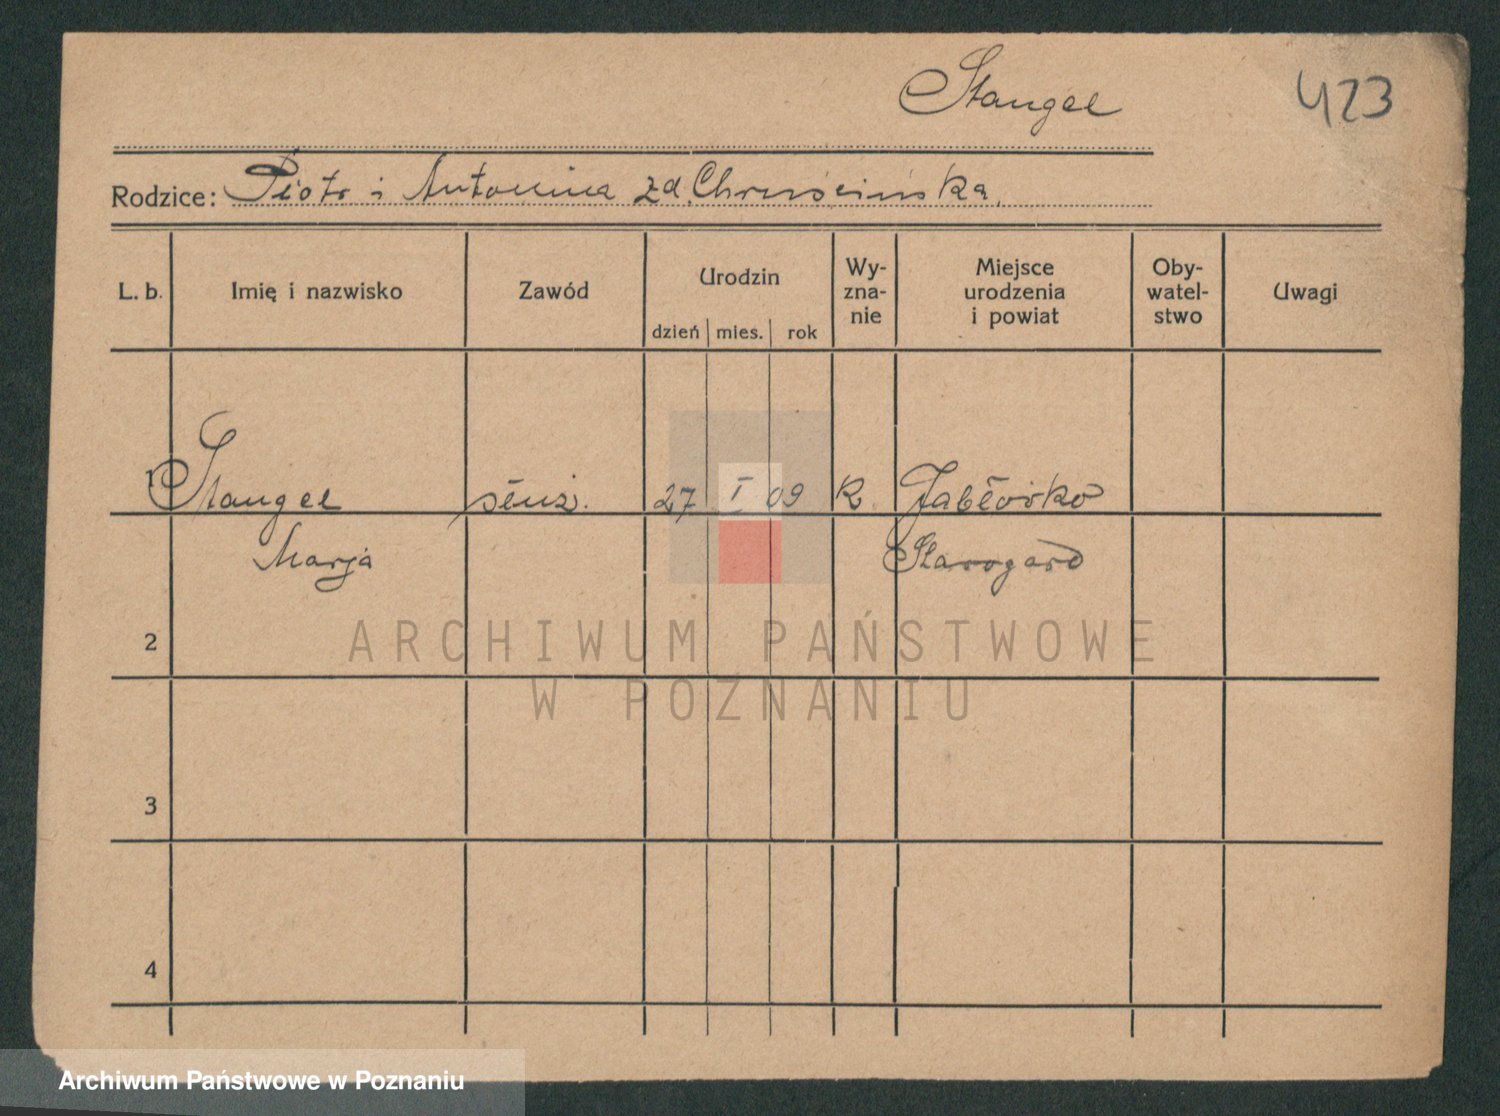 Stangel
423
Rodzice: Piotr i Antonina zd. Chruścińska.
L. b. Imię i nazwisko Zawód Urodzin dzień mies. rok Wy-zna-nie Miejsce urodzenia i powiat Oby-watel-stwo Uwagi
1 Stangel służ. 27 I 09 k. Jabłówko
Marja Starogard
2
ARCHIWUM PAŃSTWOWE
W POZNANIU
3
4
Archiwum Państwowe w Poznaniu